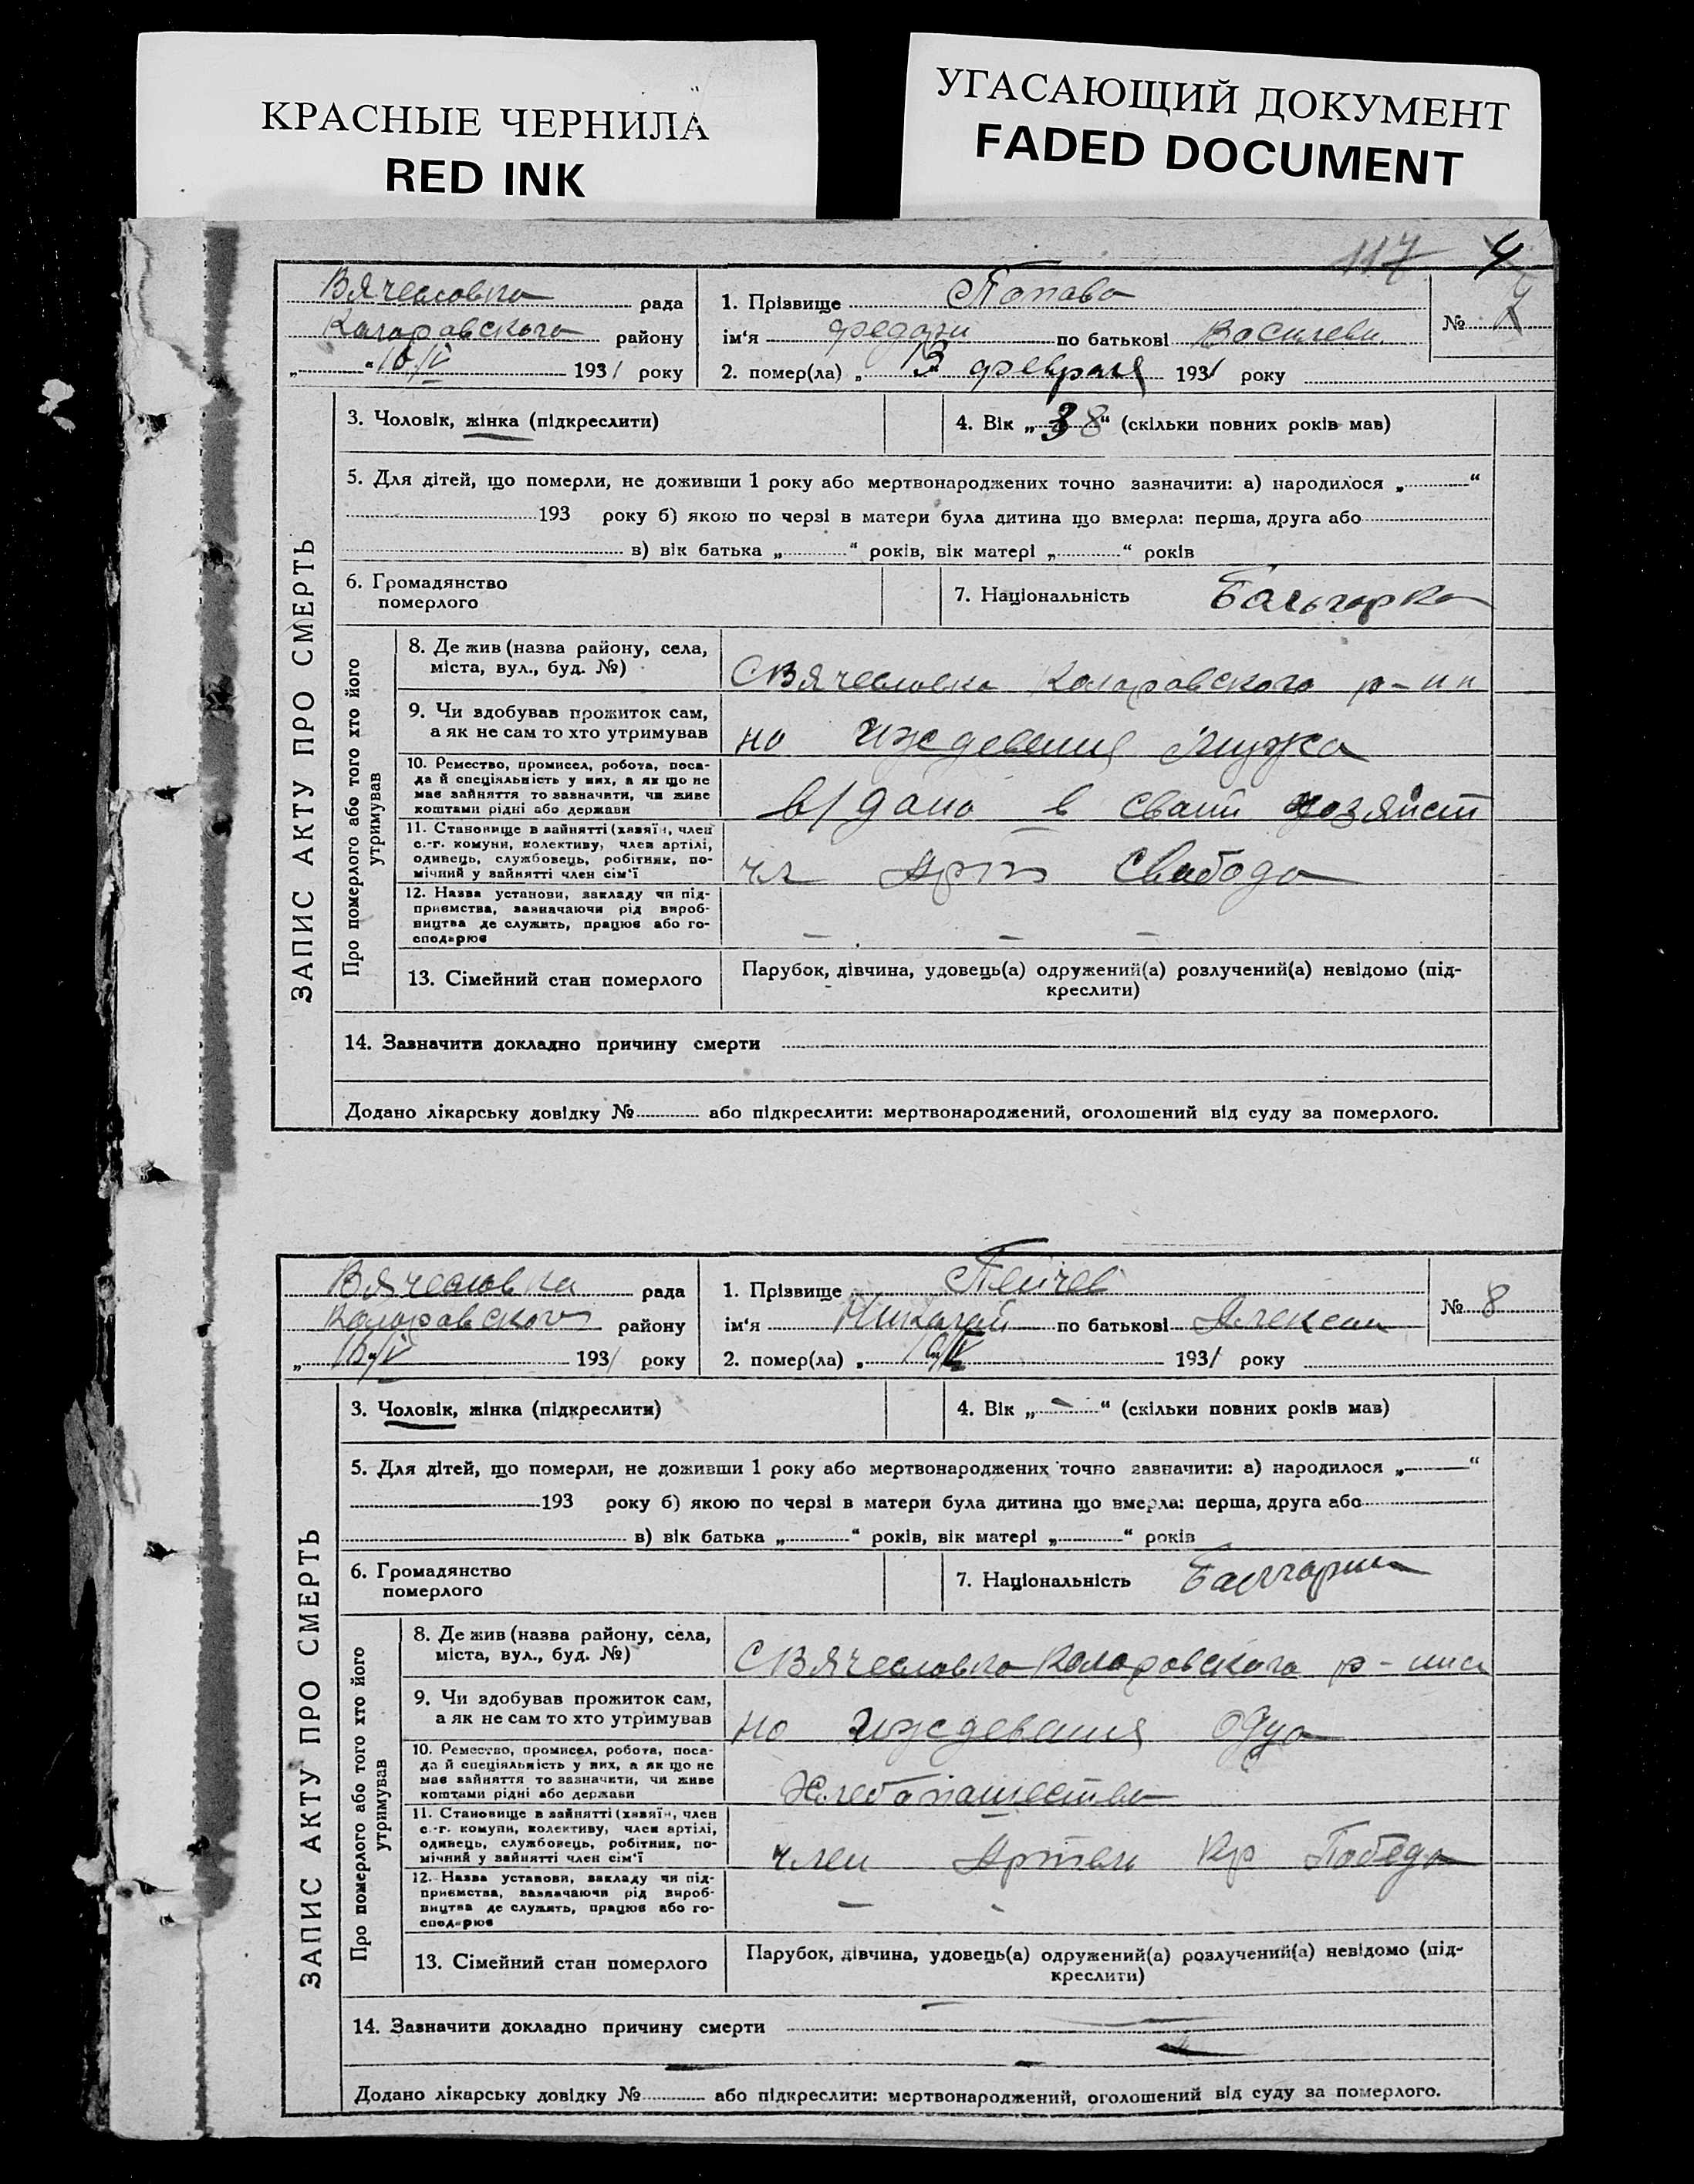 КРАСНЫЕ ЧЕРНИЛА
RED INK
УГАСАЮЩИЙ ДОКУМЕНТ
FADED DOCUMENT
117 4
ЗАПИС АКТУ ПРО СМЕРТЬ
Вячесловка рада
Коларовского району
„ “ 10/IV 1931 року
1. Прізвище Попава
ім'я по батькові Василеви.
2. помер(ла) „ 3 февраля 1931 року
№ 7
3. Чоловік, жінка (підкреслити)
4. Вік „ 38 “ (скільки повних років мав)
5. Для дітей, що померли, не доживши 1 року або мертвонароджених точно зазначити: а) народилося „ “
193 року б) якою по черзі в матери була дитина що вмерла: перша, друга або
в) вік батька „ “ років, вік матері „ “ років
6. Громадянство
померлого
7. Національність Бальгарка
Про померлого або того хто його
утримував
8. Де жив (назва району, села,
міста, вул., буд. №)
С Вячесловка Коларовского р-ни
9. Чи здобував прожиток сам,
а як не сам то хто утримував
на иждевения мужа
10. Ремество, промисел, робота, поса-
да й спеціяльність у них, а як що не
має зайняття то зазначити, чи живе
коштами рідні або держави
в свам хозяйст
11. Становище в зайнятті (хазяїн, член
с.-г. комуни, колективу, член артілі,
одинець, службовець, робітник, по-
мічний у зайнятті член сім'ї
чл Арт Свабода
12. Назва установи, закладу чи під-
приємства, зазначаючи рід вироб-
ництва де служить, працює або го-
сподарює
– – –
13. Сімейний стан померлого
Парубок, дівчина, удовець(а) одружений(а) розлучений(а) невідомо (під-
креслити)
14. Зазначити докладно причину смерти
Додано лікарську довідку № або підкреслити: мертвонароджений, оголошений від суду за померлого.
ЗАПИС АКТУ ПРО СМЕРТЬ
Вячесловка рада
Коларовского району
„ 10/IV 1931 року
1. Прізвище Пейчев
ім'я Никалай по батькові Алексеи
2. помер(ла) „ 1931 року
№ 8
3. Чоловік, жінка (підкреслити)
4. Вік „ – “ (скільки повних років мав)
5. Для дітей, що померли, не доживши 1 року або мертвонароджених точно зазначити: а) народилося „ “
193 року б) якою по черзі в матери була дитина що вмерла: перша, друга або
в) вік батька „ “ років, вік матері „ “ років
6. Громадянство
померлого
7. Національність
Про померлого або того хто його
утримував
8. Де жив (назва району, села,
міста, вул., буд. №)
С Вячесловка Коларовского
9. Чи здобував прожиток сам,
а як не сам то хто утримував
на иждевения
10. Ремество, промисел, робота, поса-
да й спеціяльність у них, а як що не
має зайняття то зазначити, чи живе
коштами рідні або держави
Хлебапашество
11. Становище в зайнятті (хазяїн, член
с.-г. комуни, колективу, член артілі,
одинець, службовець, робітник, по-
мічний у зайнятті член сім'ї
член Артели Кр Победа
12. Назва установи, закладу чи під-
приємства, зазначаючи рід вироб-
ництва де служить, працює або го-
сподарює
–
13. Сімейний стан померлого
Парубок, дівчина, удовець(а) одружений(а) розлучений(а) невідомо (під-
креслити)
14. Зазначити докладно причину смерти
Додано лікарську довідку № або підкреслити: мертвонароджений, оголошений від суду за померлого.